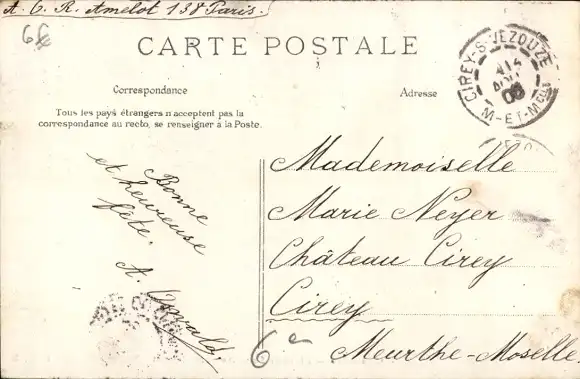 A. C. R. Amelot 138 Paris.
6€
CARTE POSTALE
Correspondance
Adresse
Tous les pays étrangers n'acceptent pas la
correspondance au recto, se renseigner à la Poste.
CIREY-S-VEZOUZE
M-ET-MELLE
Bonne
et heureuse
fête.
A. Oswald.
Mademoiselle
Marie Neyer
Château Cirey
Cirey
Meurthe-Moselle.